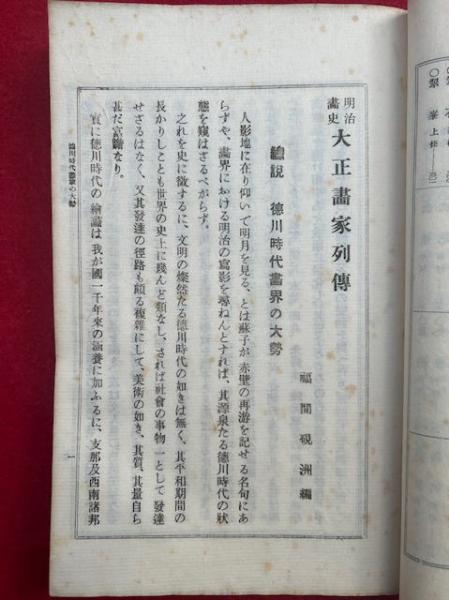 明治
畫史
大正畫家列傳
福間視洲編
總説　德川時代畫界の大勢
人影地に在り仰いで明月を見る、とは蘇子が赤壁の再游を記せる名句にあ
らずや、畫界における明治の寫影を尋ねんとすれば、其源泉たる德川時代の狀
態を窺はざるべからず。
之れを史に徵するに、文明の燦然たる德川時代の如きは無く、其平和期間の
長かりしことも世界の史上に殘んど類なし、されば社會の事物一として發達
せざるはなく、又其發達の徑路も頗る複雜にして、美術の如き、其質、其量自ら
甚だ富贍なり。
實に德川時代の繪畫は、我が國一千年來の涵養に加ふるに、支那及西南諸邦
德川時代畫界の大勢
一